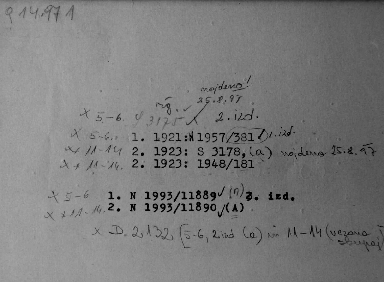 14.971
najdeno!
25.8.97
x 5-6. 3175 x 2. izd.
x 5-6. 1. 1921: N 1957/381 1. izd.
x + 11-14 2. 1923: S 3178, (a) najdeno 25.8.97
x + 11-14. 2. 1923: 1948/181
x 5-6 1. N 1993/11889 (A) 2. izd.
x + 11-14. 2. N 1993/11890 (A)
x D. 2.132, [5-6, 2. izd (a) in 11-14 (vezana skupaj)